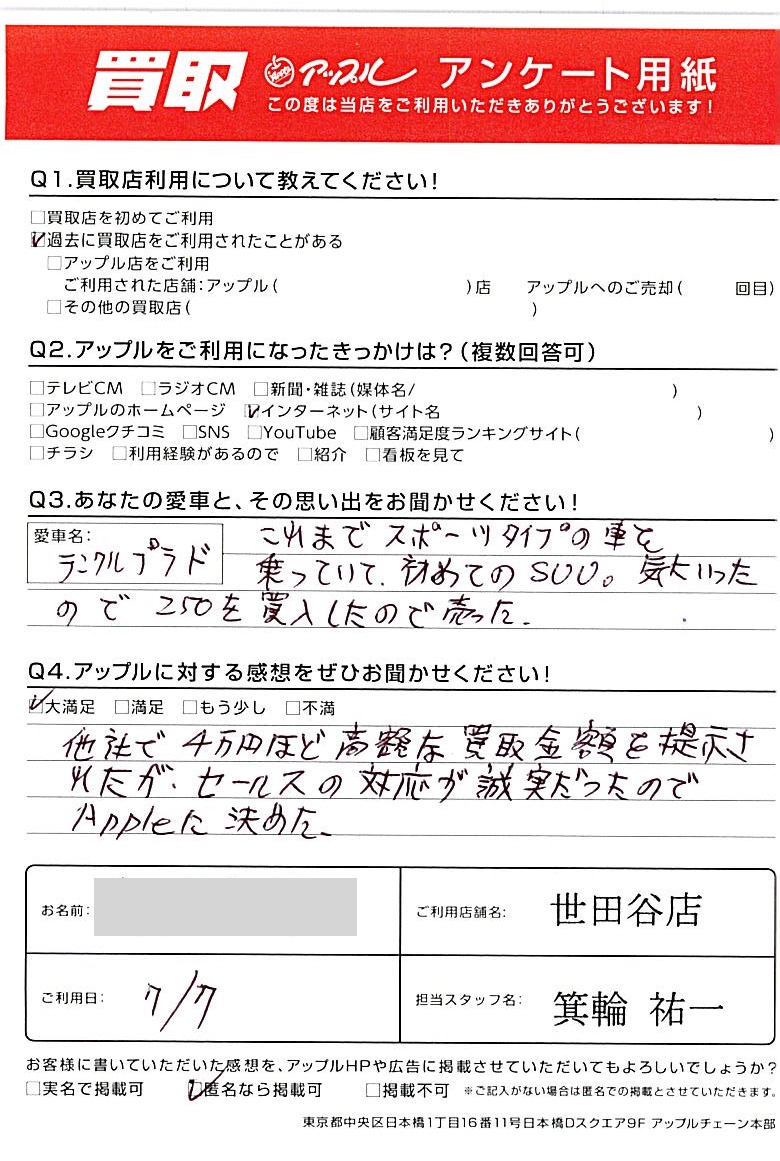 買取 アップル アンケート用紙
この度は当店をご利用いただきありがとうございます!
Q1.買取店利用について教えてください!
□買取店を初めてご利用
☑過去に買取店をご利用されたことがある
□アップル店をご利用
ご利用された店舗:アップル( )店 アップルへのご売却( 回目)
□その他の買取店( )
Q2.アップルをご利用になったきっかけは?(複数回答可)
□テレビCM □ラジオCM □新聞・雑誌(媒体名/ )
□アップルのホームページ ☑インターネット(サイト名 )
□Googleクチコミ □SNS □YouTube □顧客満足度ランキングサイト( )
□チラシ □利用経験があるので □紹介 □看板を見て
Q3.あなたの愛車と、その思い出をお聞かせください!
愛車名:
ランクルプラド
これまでスポーツタイプの車を
乗っていて、初めてのSUV。気に入った
ので250を買入したので売った。
Q4.アップルに対する感想をぜひお聞かせください!
☑大満足 □満足 □もう少し □不満
他社で4万円ほど高額な買取金額を提示さ
れたが、セールスの対応が誠実だったので
Appleに決めた。
お名前:
ご利用店舗名: 世田谷店
ご利用日: 7/7
担当スタッフ名: 箕輪 祐一
お客様に書いていただいた感想を、アップルHPや広告に掲載させていただいてもよろしいでしょうか?
□実名で掲載可 ☑匿名なら掲載可 □掲載不可 ※ご記入がない場合は匿名での掲載とさせていただきます。
東京都中央区日本橋1丁目16番11号日本橋Dスクエア9F アップルチェーン本部